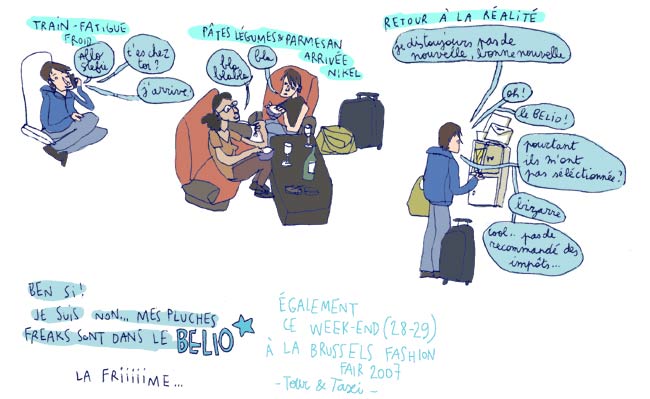 TRAIN-FATIGUE
FROID
Allo
stefu
t'es chez
toi?
j'arrive!
PÂTES LÉGUMES & PARMESAN
ARRIVÉE
NIKEL
bla
blable
bla
RETOUR À LA RÉALITÉ
je dis toujours pas de
nouvelle, bonne nouvelle
oh!
le BELIO!
pourtant
ils m'ont
pas sélectionnée?
bizarre
cool.. pas de
recommandé des
impôts...
BEN SI!
JE SUIS NON... MES PLUCHES
FREAKS SONT DANS LE BELIO
LA FRIIIIIME...
ÉGALEMENT
CE WEEK-END (28-29)
À LA BRUSSELS FASHION
FAIR 2007
- Tour & Taxi -